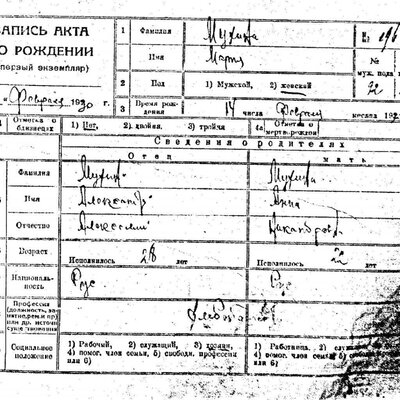 ЗАПИСЬ АКТА
О РОЖДЕНИИ
(первый экземпляр)
Февраля 1930 г.
1 Фамилия Мухина № 196
Имя Мария №
муж. пола
2 Пол 1) Мужской, 2) женский 22
3 Время рождения 14 числа Февраля месяца 19
4 Отметка о близнецах 1) Нет, 2) двойня, 3) тройня 4а Отметка о мертворожден
Сведения о родителях
Отец Мать
Фамилия Мухин Мухина
Имя Александр Анна
Отчество Алексеевич Никандров
Возраст Исполнилось 28 лет Исполнилось 22 лет
Национальность Рус Рус
Профессия (должность, занятие, ремесло) или др. источн. существования
Хлебопаш
Социальное положение
1) Рабочий, 2) служащий, 3) хозяин, 4) помог. член семьи, 5) свободн. профессии или 6)
1) Работница, 2) 4) помог. член семьи, 5) или 6)